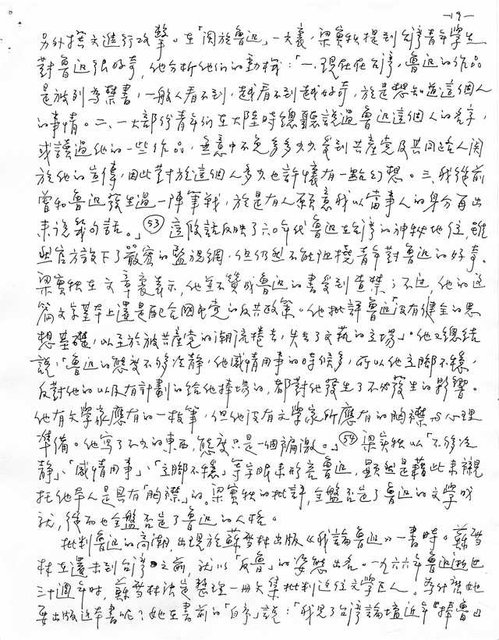 —19—
另外撰文進行攻擊。在「關於魯迅」一文裏，梁實秋提到台灣青年學生
對魯迅很好奇，他分析他們的動機：「一、現在在台灣，魯迅的作品
是被列為禁書，一般人看不到，越看不到越好奇，於是想知道這個人
的事情。二、一大部份青年們在大陸時總聽說過魯迅這個人的名字，
或讀過他的一些作品，無意中不免多多少少受到共產黨及其同路人關
於他的宣傳，因此對於這個人多少也許懷有一點幻想。三、我從前
曾和魯迅發生過一陣筆戰，於是有人願意我以當事人的身分再出
來說幾句話。」(53) 這段話反映了六〇年代魯迅在台灣的神秘地位，雖
然官方設下了嚴密的監視網，但仍然不能阻擋青年對魯迅的好奇。
梁實秋在文章裏表示，他並不贊成魯迅的書受到查禁；不過，他的這
篇文字基本上還是配合國民黨的反共政策。他批評魯迅「沒有健全的思
想基礎，以至於被共產黨的潮流捲去，失去了文藝的立場」。他又總結
說，「魯迅的態度不夠冷靜，他感情用事的時候多，所以他立腳不穩，
反對他的以及有計劃的給他捧場的，都對他發生了不必發生的影響。
他有文學家應有的一枝筆，但他沒有文學家所應有的胸襟與心理
準備。他寫了不少的東西，態度只是一個偏激。」(54) 梁實秋以「不夠冷
靜」、「感情用事」、「立腳不穩」等字眼來形容魯迅，顯然是藉此來襯
托他本人是具有「胸襟」的。梁實秋的批評，全盤否定了魯迅的文學成
就，從而也全盤否定了魯迅的人格。
批判魯迅的高潮出現於蘇雪林出版《我論魯迅》一書時。蘇雪
林在還未到台灣之前，就以「反魯」的姿態出名。一九六六年魯迅逝世
三十週年時，蘇雪林決定整理一冊文集批判近代文學巨人。為什麼她
要出版這本書呢？她在書前的「自序」說：「我見了台灣論壇近年「捧魯」